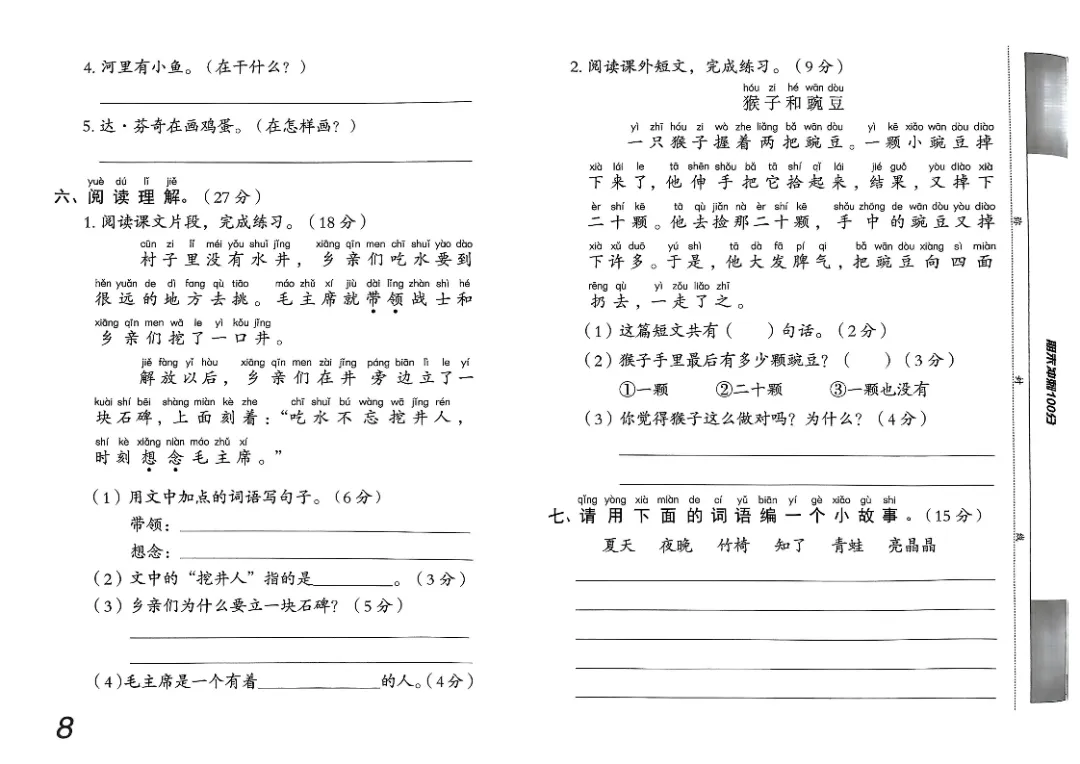 4. 河里有小鱼。（在干什么？）
5. 达·芬奇在画鸡蛋。（在怎样画？）
yuè dú lǐ jiě
六、阅读理解。（27分）
1. 阅读课文片段，完成练习。（18分）
cūn zi lǐ méi yǒu shuǐ jǐng xiāng qīn men chī shuǐ yào dào
村子里没有水井，乡亲们吃水要到
hěn yuǎn de dì fang qù tiāo máo zhǔ xí jiù dài lǐng zhàn shì hé
很远的地方去挑。毛主席就带领战士和
xiāng qīn men wā le yì kǒu jǐng
乡亲们挖了一口井。
jiě fàng yǐ hòu xiāng qīn men zài jǐng páng biān lì le yí
解放以后，乡亲们在井旁边立了一
kuài shí bēi shàng miàn kè zhe chī shuǐ bú wàng wā jǐng rén
块石碑，上面刻着：“吃水不忘挖井人，
shí kè xiǎng niàn máo zhǔ xí
时刻想念毛主席。”
（1）用文中加点的词语写句子。（6分）
带领：
想念：
（2）文中的“挖井人”指的是 。（3分）
（3）乡亲们为什么要立一块石碑？（5分）
（4）毛主席是一个有着 的人。（4分）
8
2. 阅读课外短文，完成练习。（9分）
hóu zi hé wān dòu
猴子和豌豆
yì zhī hóu zi wò zhe liǎng bǎ wān dòu yì kē xiǎo wān dòu diào
一只猴子握着两把豌豆。一颗小豌豆掉
xià lái le tā shēn shǒu bǎ tā shí qǐ lái jié guǒ yòu diào xià
下来了，他伸手把它拾起来，结果，又掉下
èr shí kē tā qù jiǎn nà èr shí kē shǒu zhōng de wān dòu yòu diào
二十颗。他去捡那二十颗，手中的豌豆又掉
xià xǔ duō yú shì tā dà fā pí qi bǎ wān dòu xiàng sì miàn
下许多。于是，他大发脾气，把豌豆向四面
rēng qù yì zǒu liǎo zhī
扔去，一走了之。
（1）这篇短文共有（ ）句话。（2分）
（2）猴子手里最后有多少颗豌豆？（ ）（3分）
①一颗 ②二十颗 ③一颗也没有
（3）你觉得猴子这么做对吗？为什么？（4分）
qǐng yòng xià miàn de cí yǔ biān yí gè xiǎo gù shi
七、请用下面的词语编一个小故事。（15分）
夏天 夜晚 竹椅 知了 青蛙 亮晶晶
期末冲刺100分
封
线